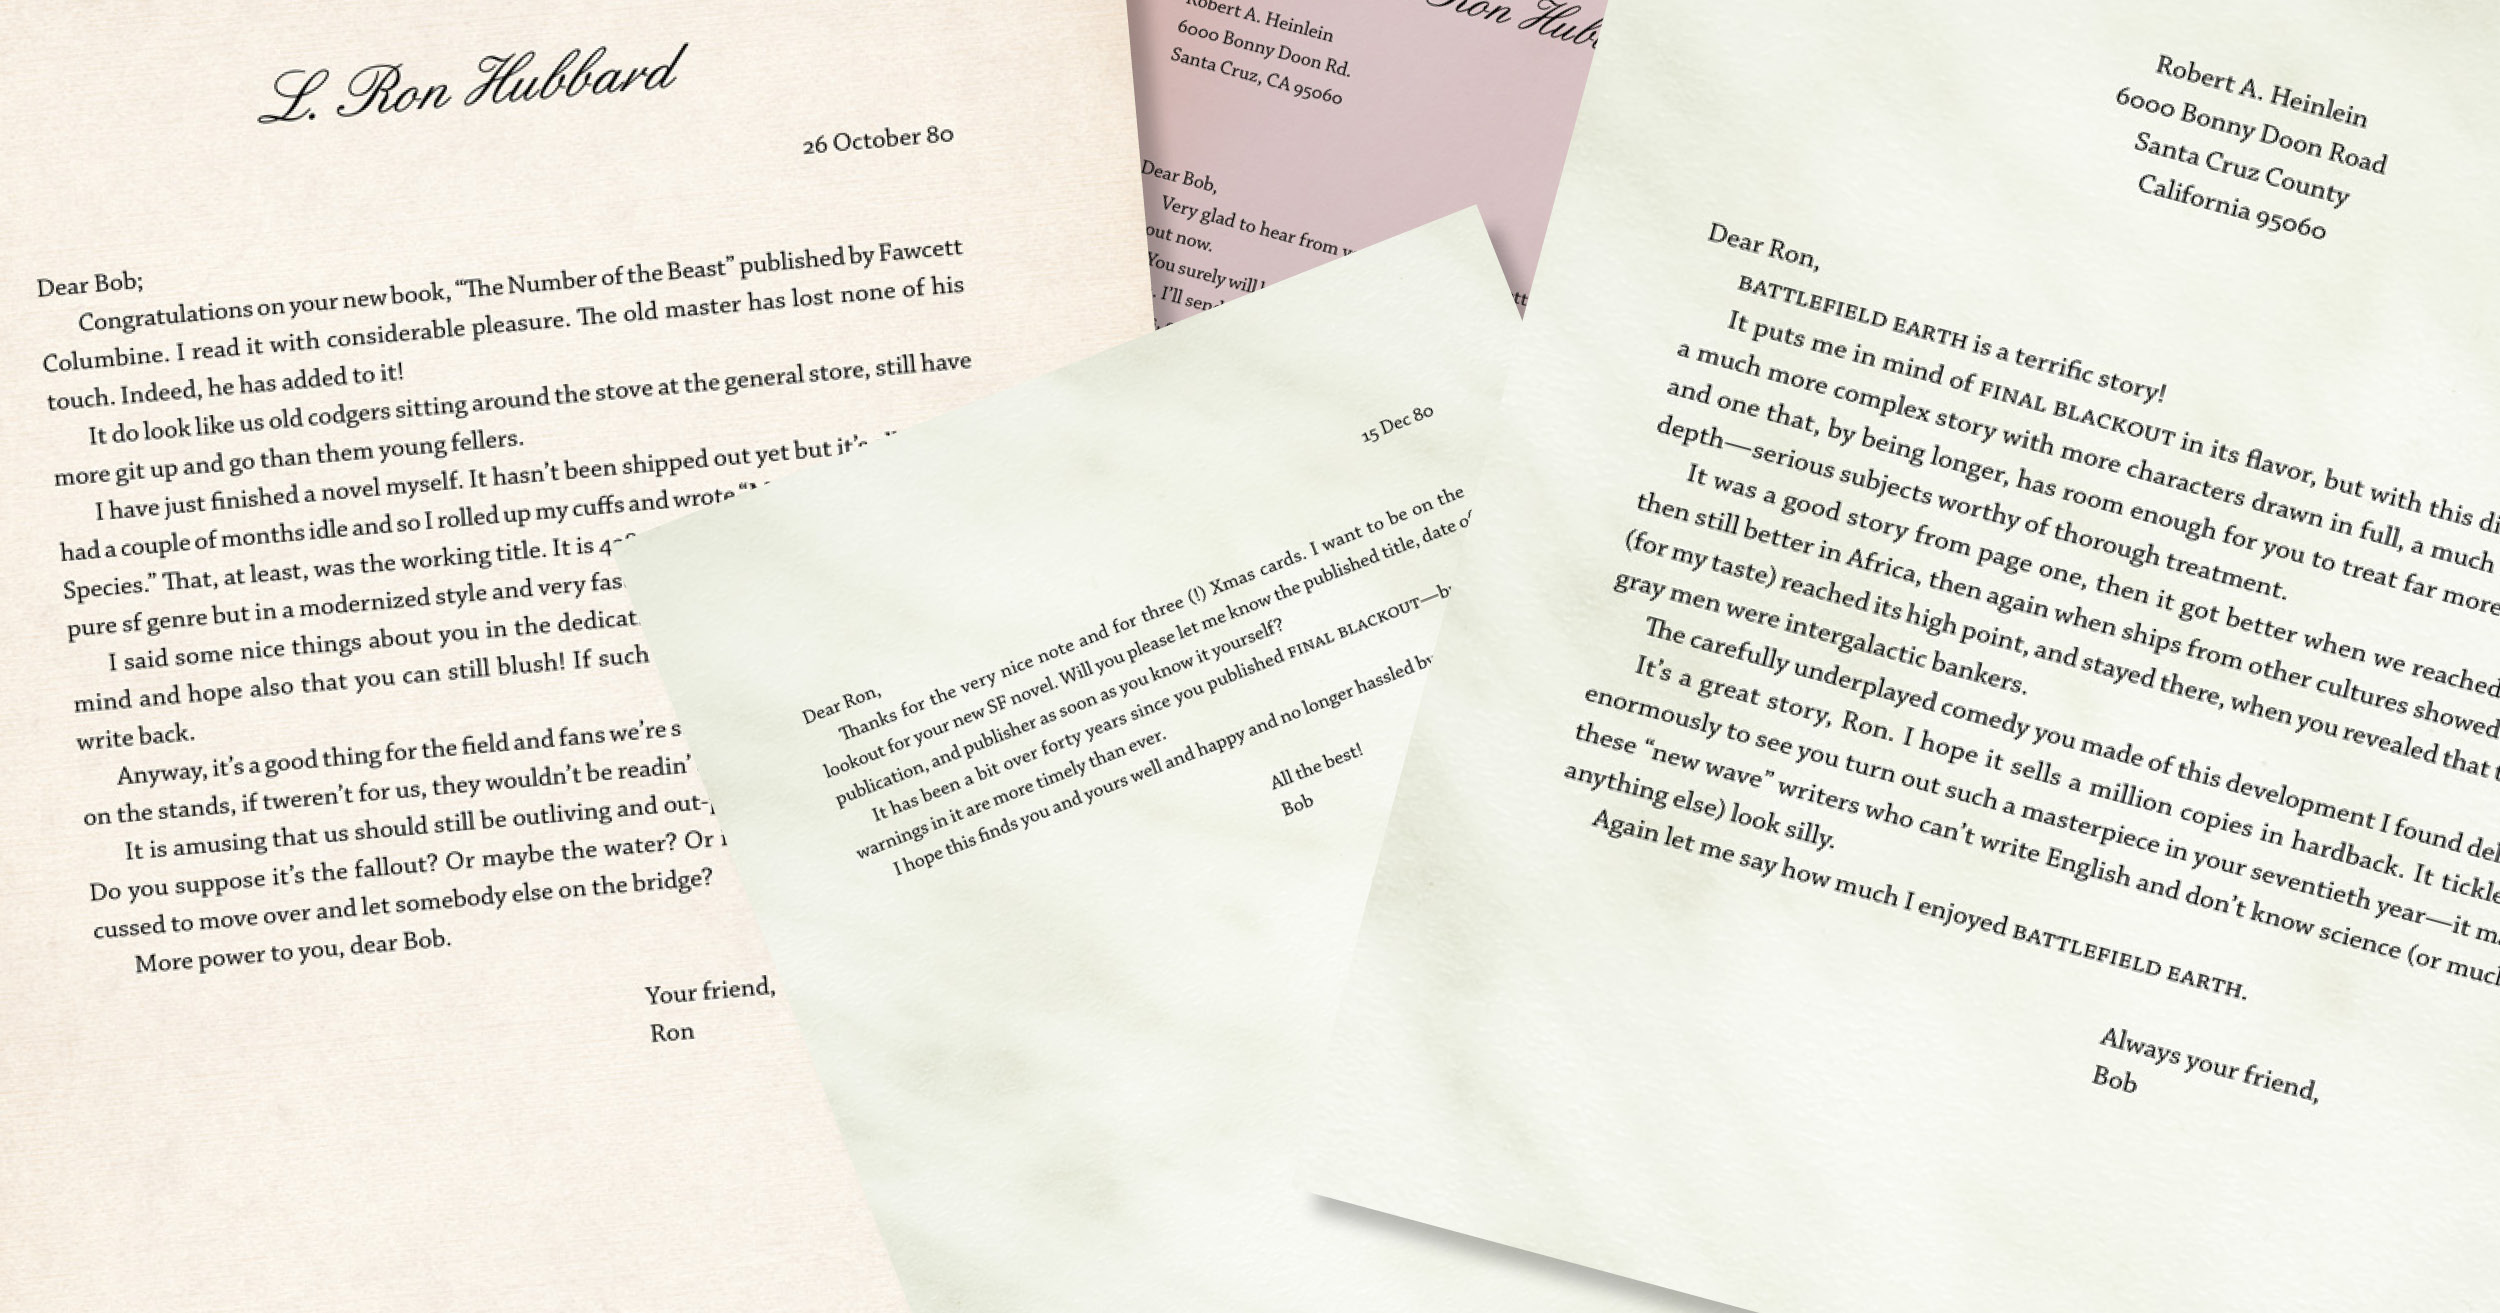 L. Ron Hubbard
26 October 80
Dear Bob;
Congratulations on your new book, “The Number of the Beast” published by Fawcett
Columbine. I read it with considerable pleasure. The old master has lost none of his
touch. Indeed, he has added to it!
It do look like us old codgers sitting around the stove at the general store, still have
more git up and go than them young fellers.
I have just finished a novel myself. It hasn’t been shipped out yet but it’s
had a couple of months idle and so I rolled up my cuffs and wrote
Species.” That, at least, was the working title. It is
pure sf genre but in a modernized style and very
I said some nice things about you in the
mind and hope also that you can still blush! If such
write back.
Anyway, it’s a good thing for the field and fans we’re
on the stands, if tweren’t for us, they wouldn’t be readin’
It is amusing that us should still be outliving and
Do you suppose it’s the fallout? Or maybe the water? Or
cussed to move over and let somebody else on the bridge?
More power to you, dear Bob.
Your friend,
Ron
Ron
Robert A. Heinlein
6000 Bonny Doon Rd.
Santa Cruz, CA 95060
Dear Bob,
Very glad to hear from
out now.
You surely will
I’ll
15 Dec 80
Dear Ron,
Thanks for the very nice note and for three (!) Xmas cards. I want to be on the
lookout for your new SF novel. Will you please let me know the published title, date of
publication, and publisher as soon as you know it yourself?
It has been a bit over forty years since you published FINAL BLACKOUT—
warnings in it are more timely than ever.
I hope this finds you and yours well and happy and no longer hassled
All the best!
Bob
Robert A. Heinlein
6000 Bonny Doon Road
Santa Cruz County
California 95060
Dear Ron,
BATTLEFIELD EARTH is a terrific story!
It puts me in mind of FINAL BLACKOUT in its flavor, but with this
a much more complex story with more characters drawn in full, a much
and one that, by being longer, has room enough for you to treat far more
depth—serious subjects worthy of thorough treatment.
It was a good story from page one, then it got better when we reached
then still better in Africa, then again when ships from other cultures showed
(for my taste) reached its high point, and stayed there, when you revealed that
gray men were intergalactic bankers.
The carefully underplayed comedy you made of this development I found
It’s a great story, Ron. I hope it sells a million copies in hardback. It
enormously to see you turn out such a masterpiece in your seventieth year—it
these “new wave” writers who can’t write English and don’t know science (or
anything else) look silly.
Again let me say how much I enjoyed BATTLEFIELD EARTH.
Always your friend,
Bob